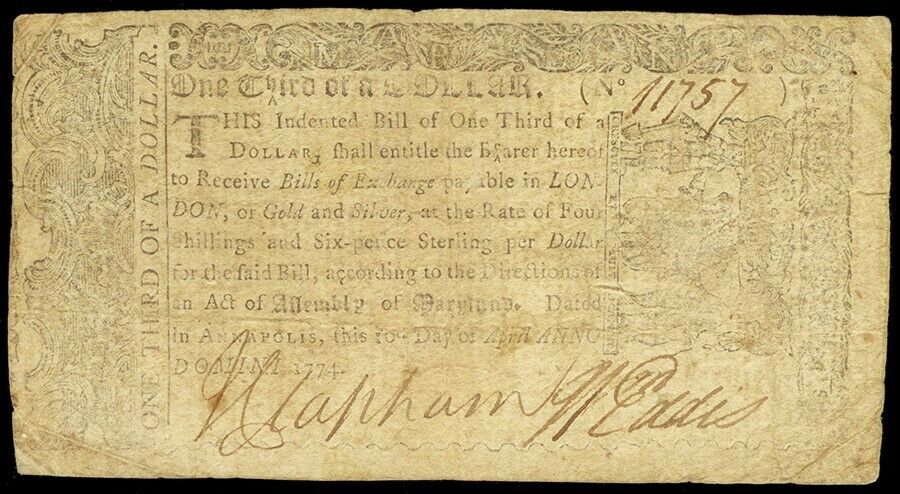 MARYLAND
ONE THIRD OF A DOLLAR.
One Third of a DOLLAR. (No 11757 )
THIS Indented Bill of One Third of a
DOLLAR, ſhall entitle the Bearer hereof
to Receive Bills of Exchange payable in LON-
DON, or Gold and Silver, at the Rate of Four
Shillings and Six-pence Sterling per Dollar
for the ſaid Bill, according to the Directions of
an Act of Aſſembly of Maryland. Dated
in ANNAPOLIS, this 10th Day of April ANNO
DOMINI 1774.
J Clapham Wm Eddis